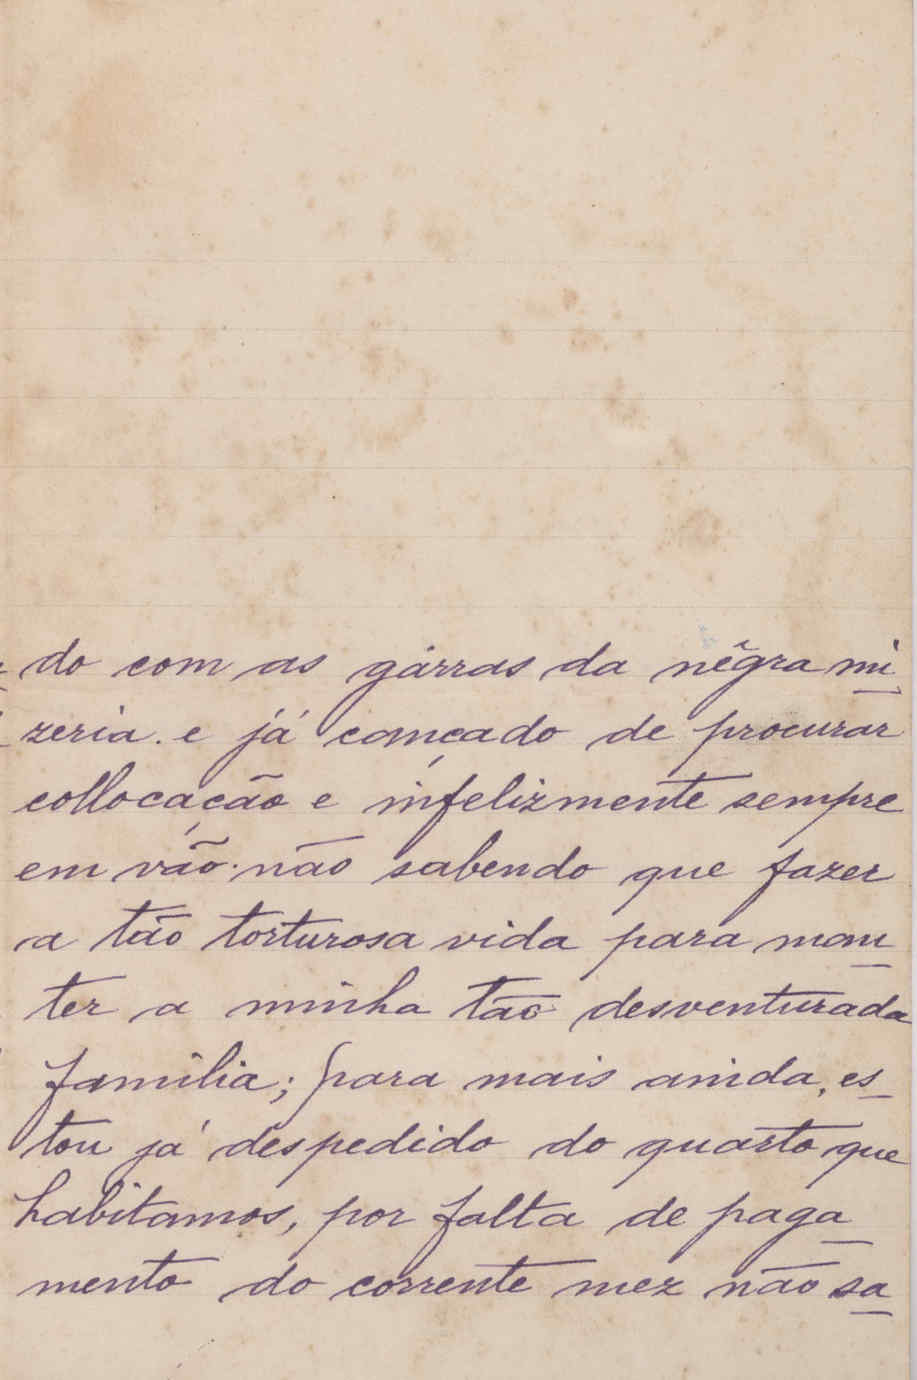 do com as gárras da nêgra mi_
zeria. e já cançado de procurar
collocação e infelizmente sempre
em vão. não sabendo que fazer
a tão torturosa vida para man_
ter a minha tão desventurada
familia; para mais ainda, es_
tou já despedido do quarto que
habitamos, por falta de paga_
mento do corrente mez não sa_